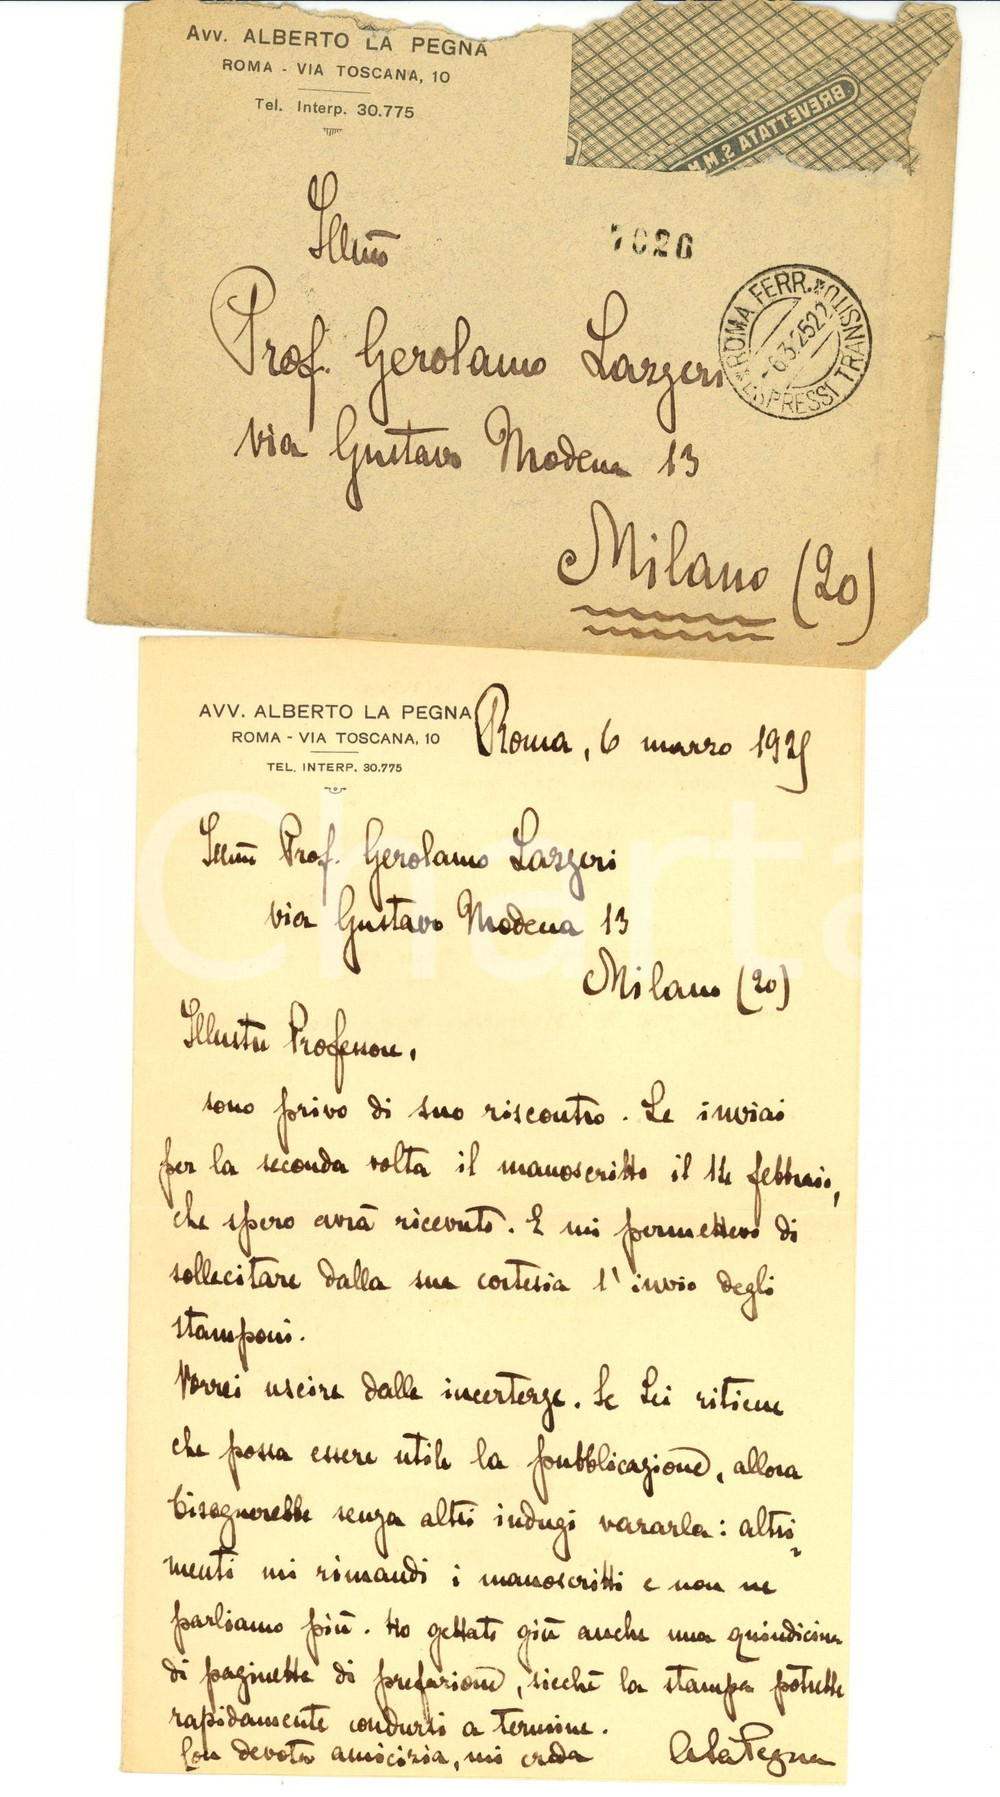 Avv. ALBERTO LA PEGNA
ROMA - VIA TOSCANA, 10
Tel. Interp. 30.775
BREVETTATA S.M.
7026
ROMA FERR. TRANSITO
6.3.25 22
ESPRESSI
Illmo
Prof. Gerolamo Lazzeri
via Gustavo Modena 13
Milano (20)
AVV. ALBERTO LA PEGNA
ROMA - VIA TOSCANA, 10
TEL. INTERP. 30.775
Roma, 6 marzo 1925
Illmo Prof. Gerolamo Lazzeri
via Gustavo Modena 13
Milano (20)
Illustre Professore,
sono privo di suo riscontro. Le inviai
per la seconda volta il manoscritto il 14 febbraio,
che spero avrà ricevuto. E mi permettevo di
sollecitare dalla sua cortesia l'invio degli
stamponi.
Vorrei uscire dalle incertezze. Se Lei ritiene
che possa essere utile la pubblicazione, allora
bisognerebbe senza altri indugi vararla: altri-
menti mi rimandi i manoscritti e non ne
parliamo più. Ho gettato giù anche una quindicina
di paginette di prefazione, sicchè la stampa potrebbe
rapidamente condursi a termine.
Con devota amicizia, mi creda
A La Pegna
iCharta